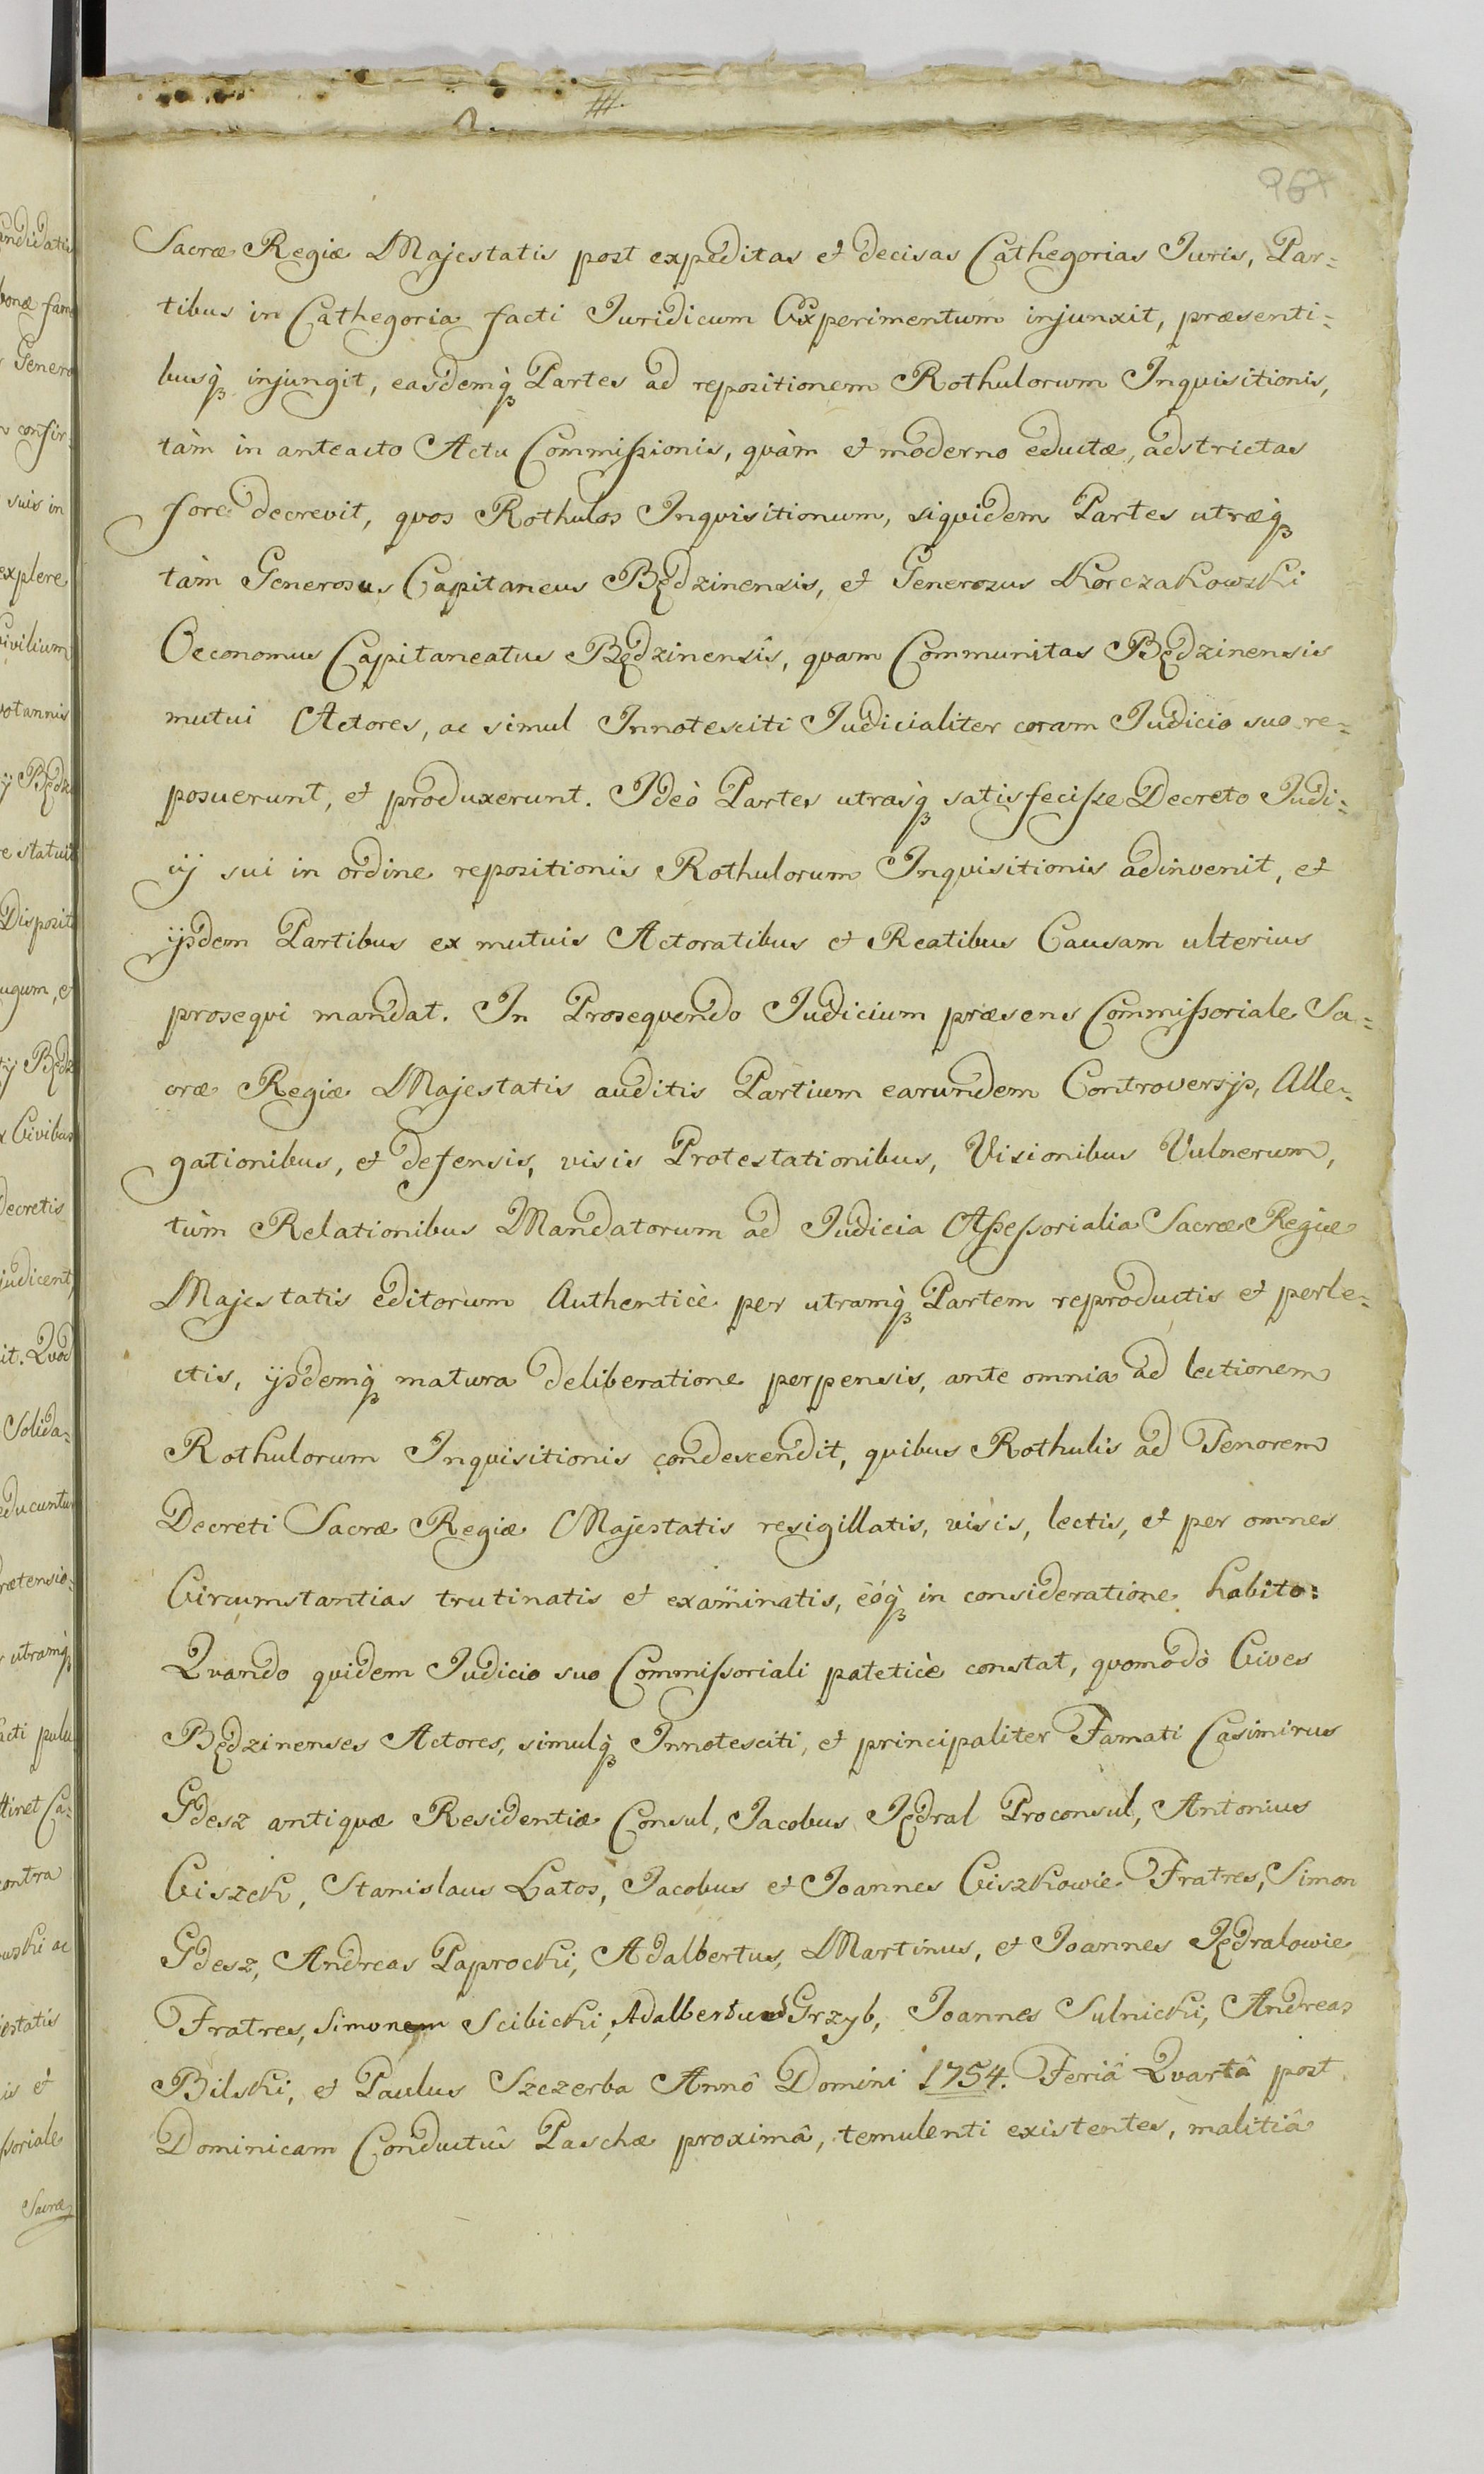 967
Sacræ Regiæ Majestatis post expeditas et decisas Cathegorias Juris, Par=
tibus in Cathegoria facti Juridicum Experimentum injunxit, præsenti=
busq́ injungit, easdemq́ Partes ad repositionem Rothulorum Inquisitionis,
tàm in anteacto Actu Commißionis, quàm et moderno eductæ, adstrictas
fore decrevit, quos Rothulos Inquisitionum, siquidem Partes utræq́
tàm Generosus Capitaneus Będzinensis, et Generosus Korczakowski
Oeconomus Capitaneatus Będzinensîs, quam Communitas Będzinensis
mutui Actores, ac simul Innotesciti Judicialiter coram Judicio suo re=
posuerunt, et produxerunt. Ideò Partes utrasq́ satisfeciße Decreto Judi=
cij sui in ordine repositionis Rothulorum Inquisitionis adinvenit, et
ijsdem Partibus ex mutuis Actoratibus et Reatibus Causam ulterius
prosequi mandat. In Prosequendo Judicium præsens Commißoriale Sa=
cræ Regiæ Majestatis auditis Partium earundem Controversijs, Alle=
gationibus, et defensis, visis Protestationibus, Visionibus Vulnerum,
tùm Relationibus Mandatorum ad Judicia Aßeßorialia Sacræ Regiæ
Majestatis editorum Authenticè per utramq́ Partem reproductis et perle=
ctis, ijsdemq́ matura deliberatione perpensis, ante omnia ad lectionem
Rothulorum Inquisitionis condescendit, quibus Rothulis ad Tenorem
Decreti Sacræ Regiæ Majestatis resigillatis, visis, lectis, et per omnes
Circumstantias trutinatis et examinatis, eóq́ in consideratione habito:
Quando quidem Judicio suo Commißoriali pateticè constat, quomodò Cives
Będzinenses Actores, simulq́ Innotesciti, et principaliter Famati Casimirus
Gdesz antiquæ Residentiæ Consul, Jacobus Jędral Proconsul, Antonius
Ciszek, Stanislaus Łatos, Jacobus et Joannes Ciszkowie Fratres, Simon
Gdesz, Andreas Paprocki, Adalbertus, Martinus, et Joannes Jędralowie
Fratres, Simonem Scibicki, Adalbertus Grzyb, Joannes Sulnicki, Andreas
Bilski, et Paulus Szczerba Annô Domini 1754. Feriâ Quartâ post
Dominicam Conductûs Paschæ proximâ, temulenti existentes, malitiâ